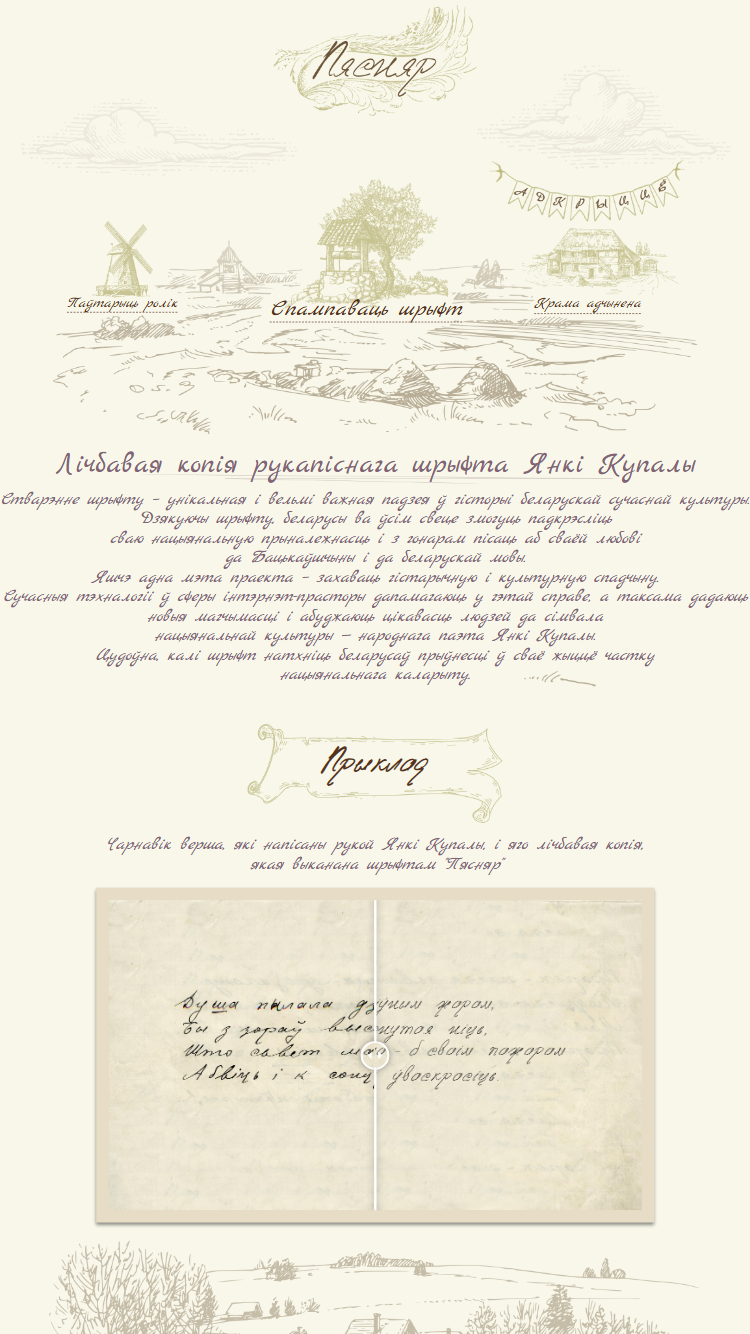 Пясняр
АДКРЫЦЦЁ
Падтарыць ролік
Спампаваць шрыфт
Крама адчынена
Лічбавая копія рукапіснага шрыфта Янкі Купалы
Стварэнне шрыфту – унікальная і вельмі важная падзея ў гісторыі беларускай сучаснай культуры.
Дзякуючы шрыфту, беларусы ва ўсім свеце змогуць падкрэсліць
сваю нацыянальную прыналежнасць і з гонарам пісаць аб сваёй любові
да Бацькаўшчыны і да беларускай мовы.
Яшчэ адна мэта праекта – захаваць гістарычную і культурную спадчыну.
Сучасныя тэхналогіі ў сферы інтэрнэт-прасторы дапамагаюць у гэтай справе, а таксама дадаюць
новыя магчымасці і абуджаюць цікавасць людзей да сімвала
нацыянальнай культуры – народнага паэта Янкі Купалы.
Цудоўна, калі шрыфт натхніць беларусаў прыўнесці ў сваё жыццё частку
нацыянальнага каларыту.
Прыклад
Чарнавік верша, які напісаны рукой Янкі Купалы, і яго лічбавая копія,
якая выканана шрыфтам "Пясняр"
Душа пылала дзіўным жарам,
Бы з зораў выснутая ніць,
Што савет мой - б сваім пажарам
Абвіць і к сонцу ўваскрасіць.